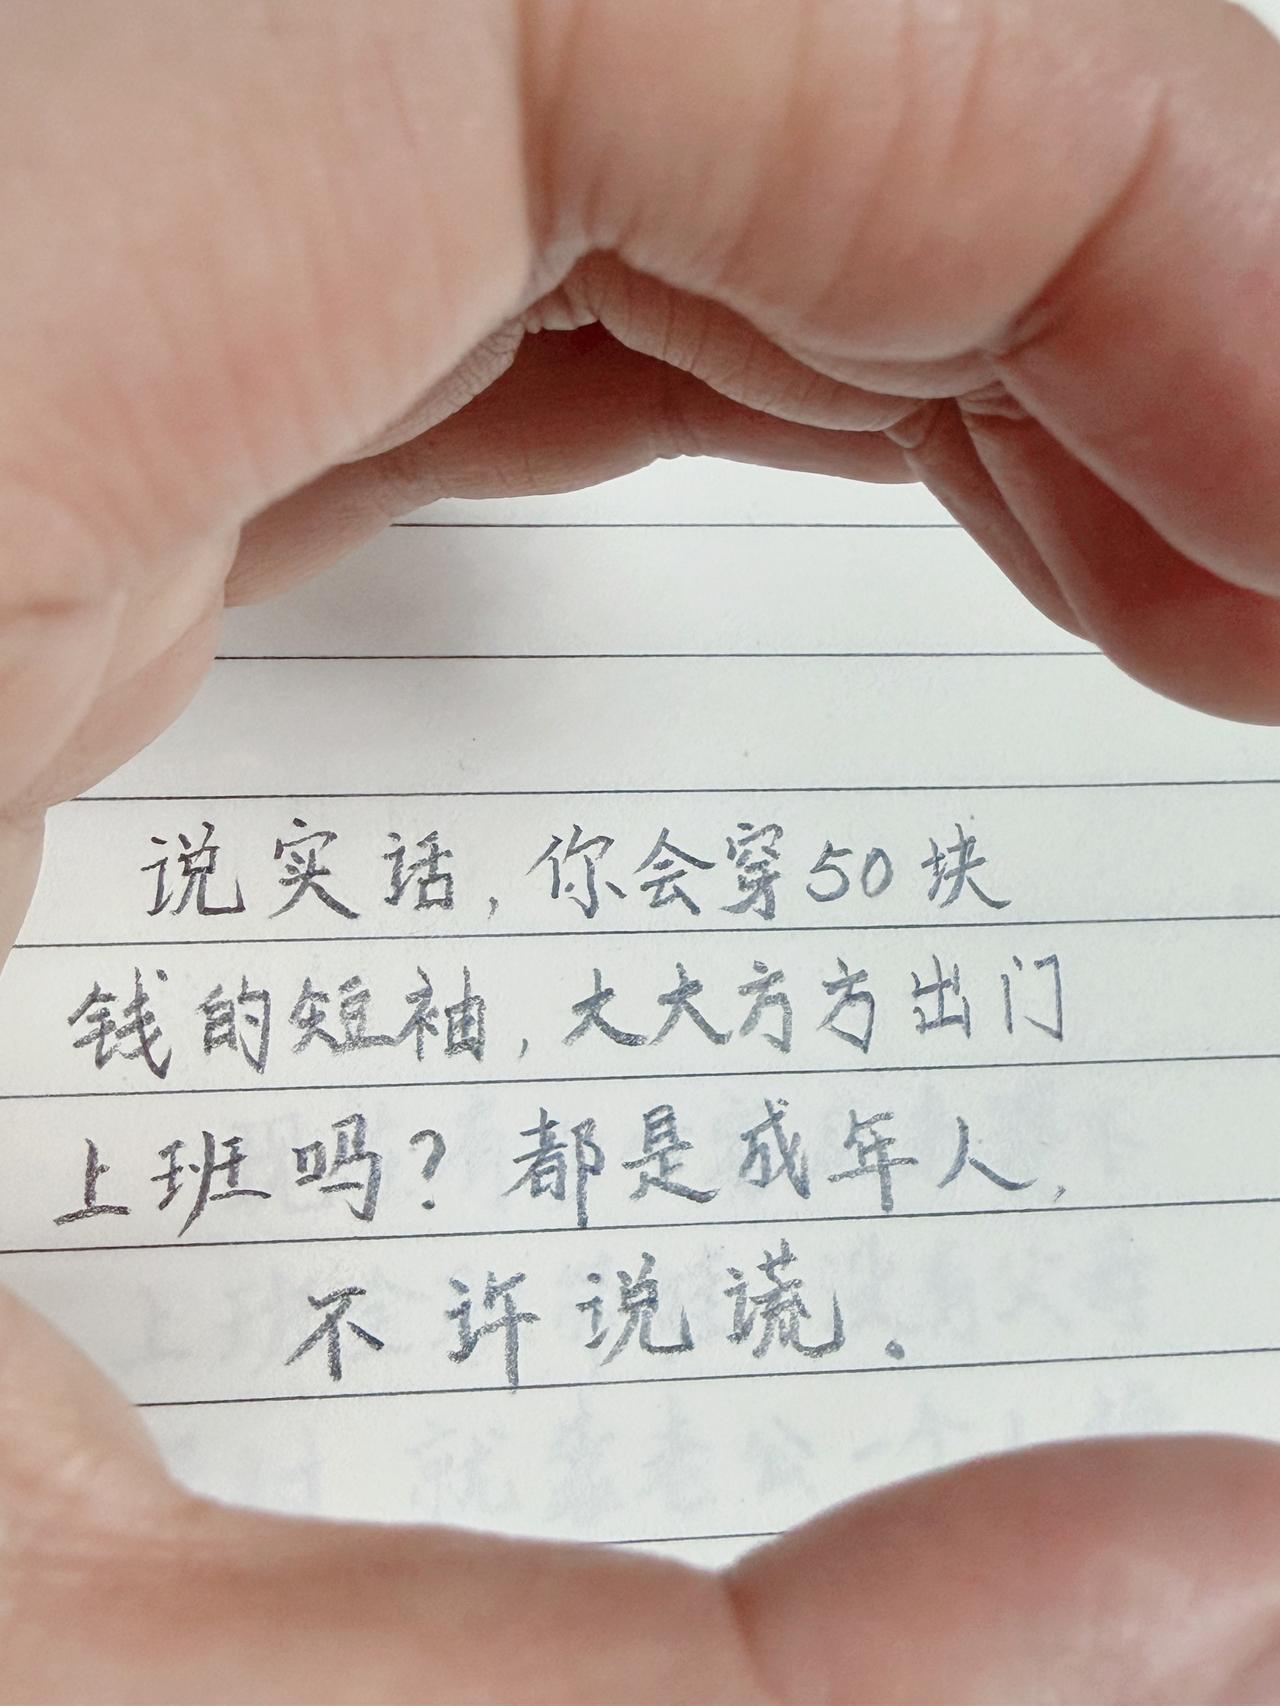 说实话,你会穿50块
钱的短袖,大大方方出门
上班吗?都是成年人,
不许说谎.